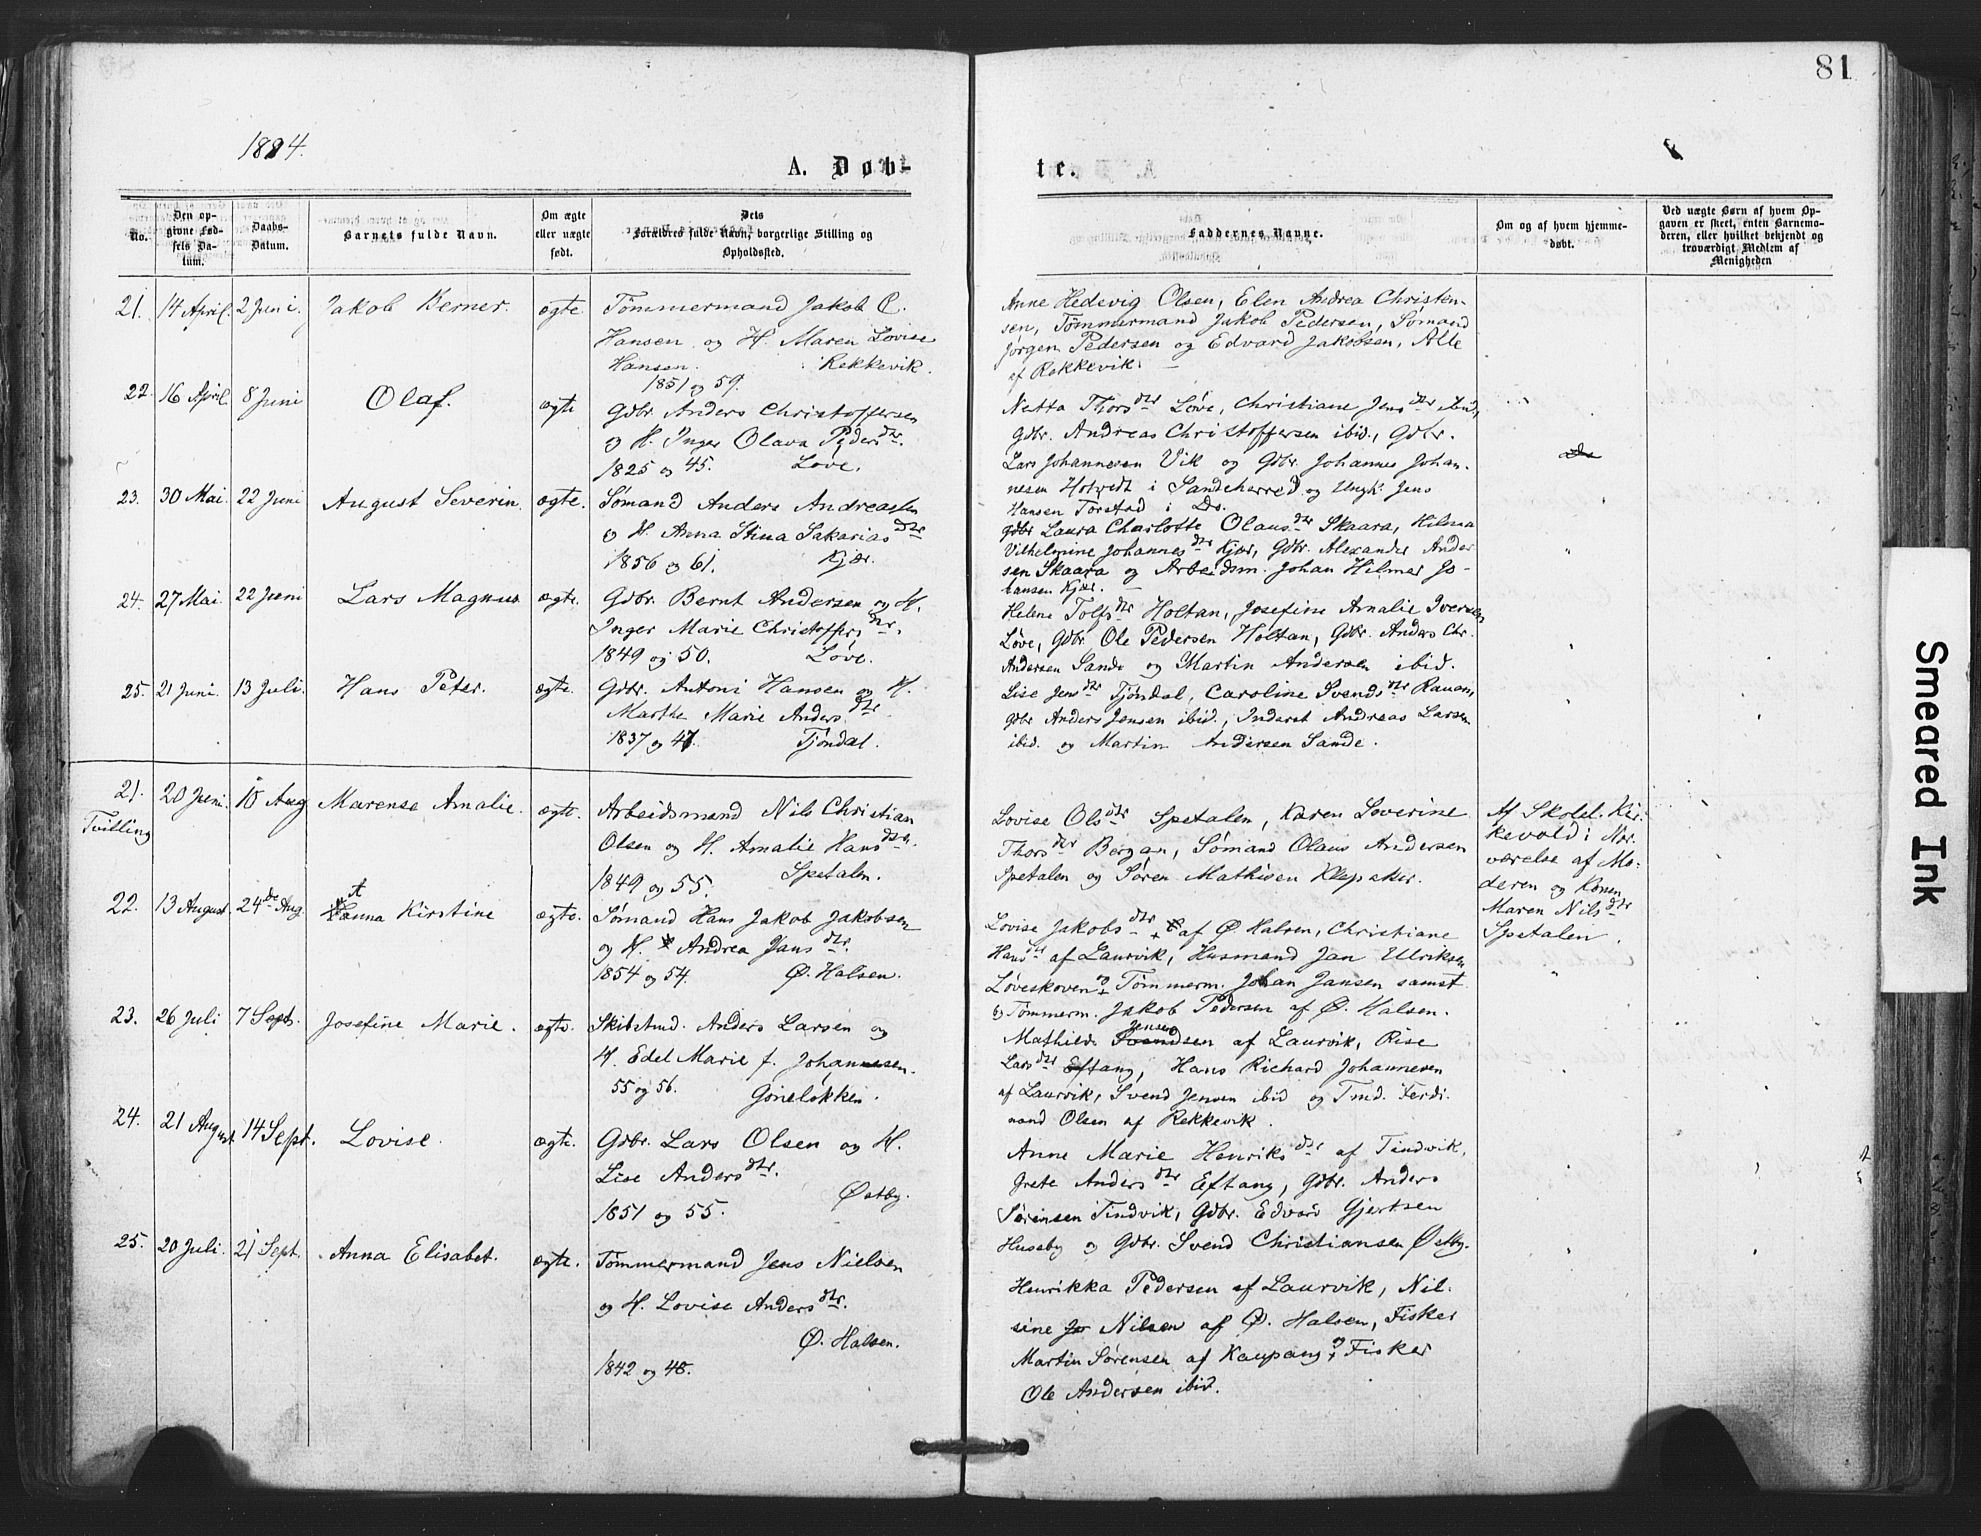 81
1884.
A. Døb-
te.
No.
Den op-
givne Fød-
sels Da-
tum.
Daabs-
Datum.
Barnets fulde Navn.
Om ægte
eller uægte
født.
Dets
Forældres fulde Navn, borgerlige Stilling og
Opholdssted.
Faddernes Navne.
Om og af hvem hjemme-
døbt.
Ved uægte Børn af hvem Op-
gaven er skeet, enten Barnemo-
deren, eller hvilket bekjendt og
troværdigt Medlem af
Menigheden
21. 14 April. 2 Juni. Jakob Berner. ægte
Tømmermand Jakob C.
Hansen og H. Maren Lovise
Hansen. Rekkevik.
1851 og 59.
Anne Hedevig Olsen, Elen Andrea Christen-
sen, Tømmermand Jakob Pedersen, Sømand
Jørgen Pedersen og Edvard Jakobsen, Alle
af Rekkevik.
22. 16 April. 8 Juni Olaf. ægte
Gdbr. Anders Christoffersen
og H. Inger Olava Peders dtr.
1825 og 45. Løve.
Netta Thors dtr Løve, Christiane Jens dtr ibid,
Gdbr. Andreas Christoffersen ibid., Gdbr.
Lars Johannesen Vik og Gdbr. Johannes Johan-
nesen Hotvedt i Sandeherred og Ungk. Jens
Hansen Torstad i Do.
23. 30 Mai. 22 Juni August Severin. ægte.
Sømand Anders Andreassen
og H. Anna Stina Sakarias dtr
1856 og 61. Kjær.
Gdbr Laura Charlotte Olaus dtr Skaara, Hilma
Vilhelmine Johannes dtr Kjær, Gdbr. Alexander Ander
sen Skaara og Arbeidsm. Johan Hilmer Jo-
hansen Kjær.
24. 27 Mai 22 Juni Lars Magnus ægte.
Gdbr. Bernt Andersen og H.
Inger Marie Christoffers dtr.
1849 og 50. Løve.
Helene Tolfs dtr Holtan, Josefine Amalie Iversen
Løve, Gdbr. Ole Pedersen Holtan, Gdbr. Anders Chr.
Andersen Sande og Martin Andersen ibid.
25. 21 Juni. 13 Juli. Hans Peter. ægte.
Gdbr. Antoni Hansen og H.
Marthe Marie Anders dtr.
1837 og 47. Tjøndal.
Lise Jens dtr Tjøndal, Caroline Svends dtr Rauan,
Gdbr Anders Jensen ibid., Inderst Andreas Larsen
ibid. og Martin Andersen Sande.
21. 20 Juni. 10 Aug Marense Amalie. ægte.
Tvilling
Arbeidsmand Nils Christian
Olsen og H. Amalie Hans dtr.
1849 og 55. Spetalen.
Lovise Ols dtr Spetalen, Karen Severine
Thors dtr Bergan, Sømand Olaus Andersen
Spetalen og Søren Mathisen Klepaker.
Af Skolel. Kir-
kevold i Nær-
værelse af Mo-
deren og Konen
Maren Nils dtr
Spetalen.
22. 13 August. 24de Aug. Hanna Kirstine ægte.
Sømand Hans Jakob Jakobsen
og H. Andrea Jans dtr.
1854 og 54. Ø. Halsen.
Lovise Jakobs dtr af Ø Halsen, Christiane
Hans dtr af Laurvik, Husmand Jan Ulriksen
Løveskoven og Tømmerm. Johan Jansen samt
Tømmerm. Jakob Pedersen af Ø. Halsen.
23. 26 Juli 7 Sept. Josefine Marie. ægte.
Skibstmd. Anders Larsen og
H. Edel Marie f. Johannesen.
55 og 56. Goneløkken.
Mathilde Jensen af Laurvik, Rise
Lars dtr Eftang, Hans Richard Johannesen
af Laurvik, Svend Jensen ibid og Tmd. Ferdi-
nand Olsen af Rekkevik.
24. 21 August. 14 Sept. Lovise. ægte.
Gdbr. Lars Olsen og H.
Lise Anders dtr.
Østby.
1851 og 55.
Anne Marie Henriks dtr af Tindvik,
Grete Anders dtr Eftang, Gdbr. Anders
Sørensen Tindvik, Gdbr. Edvard Gjertsen
Huseby og Gdbr. Svend Christiansen Østby.
25. 20 Juli. 21 Sept. Anna Elisabet. ægte.
Tømmermand Jens Nielsen
og H. Lovise Anders dtr.
Ø. Halsen.
1842 og 48.
Henrikka Pedersen af Laurvik, Nil-
sine Nilsen af Ø. Halsen, Fisker
Martin Sørensen af Kaupang og Fisker
Ole Andersen ibid.
Smeared Ink